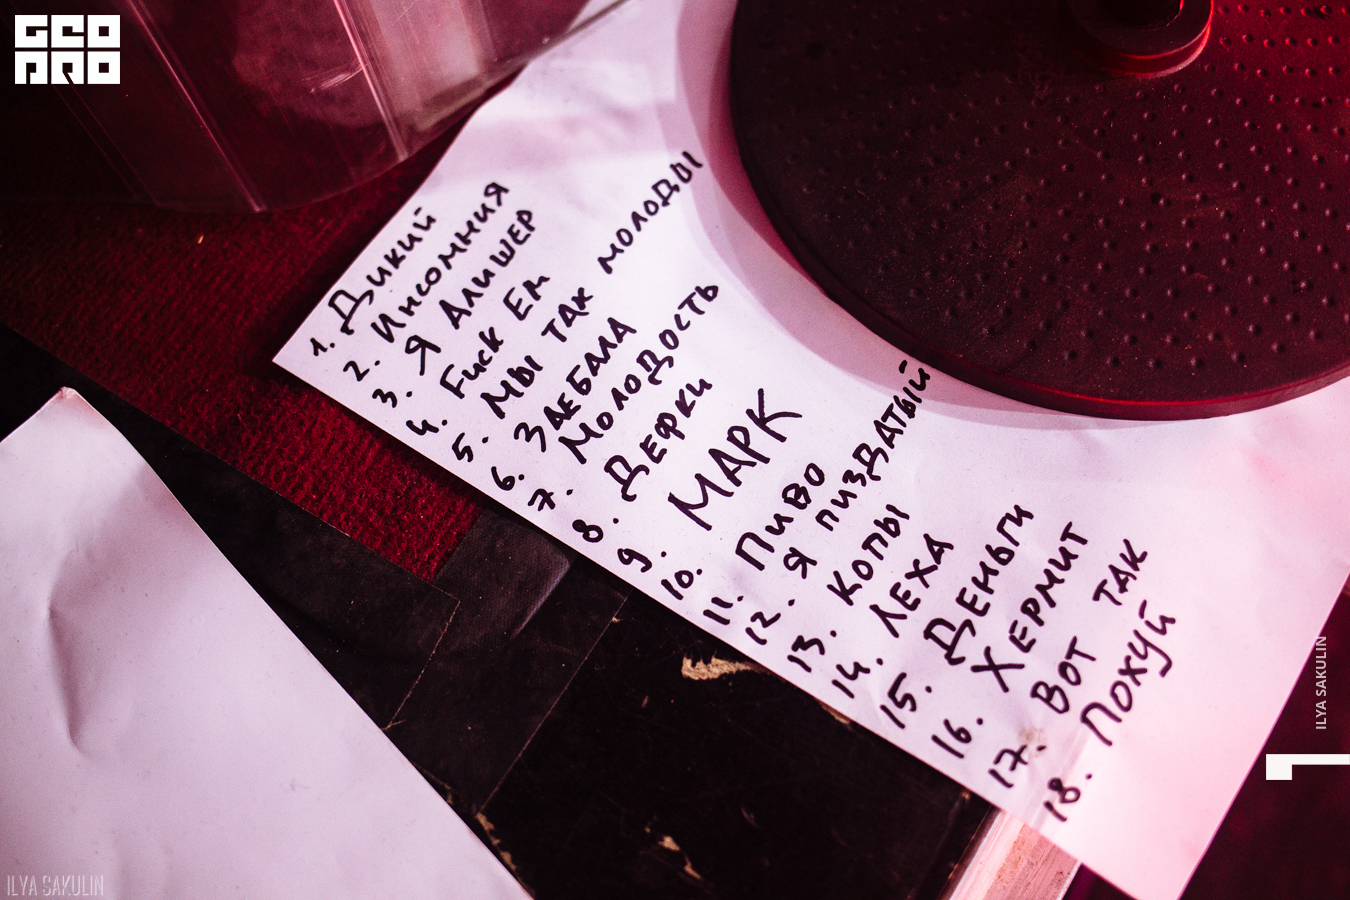 GEO
PRO
1. Дикий
2. Инсомния
3. Я Алишер
4. Fuck Em
5. Мы так молоды
6. Заебала
7. Молодость
8. Дефки
9. МАРК
10.
11. Пиво
12. Я пиздатый
13. Копы
14. Леха
15. Деньги
16. Хермит
17. Вот так
18. Похуй
ILYA SAKULIN
ILYA SAKULIN